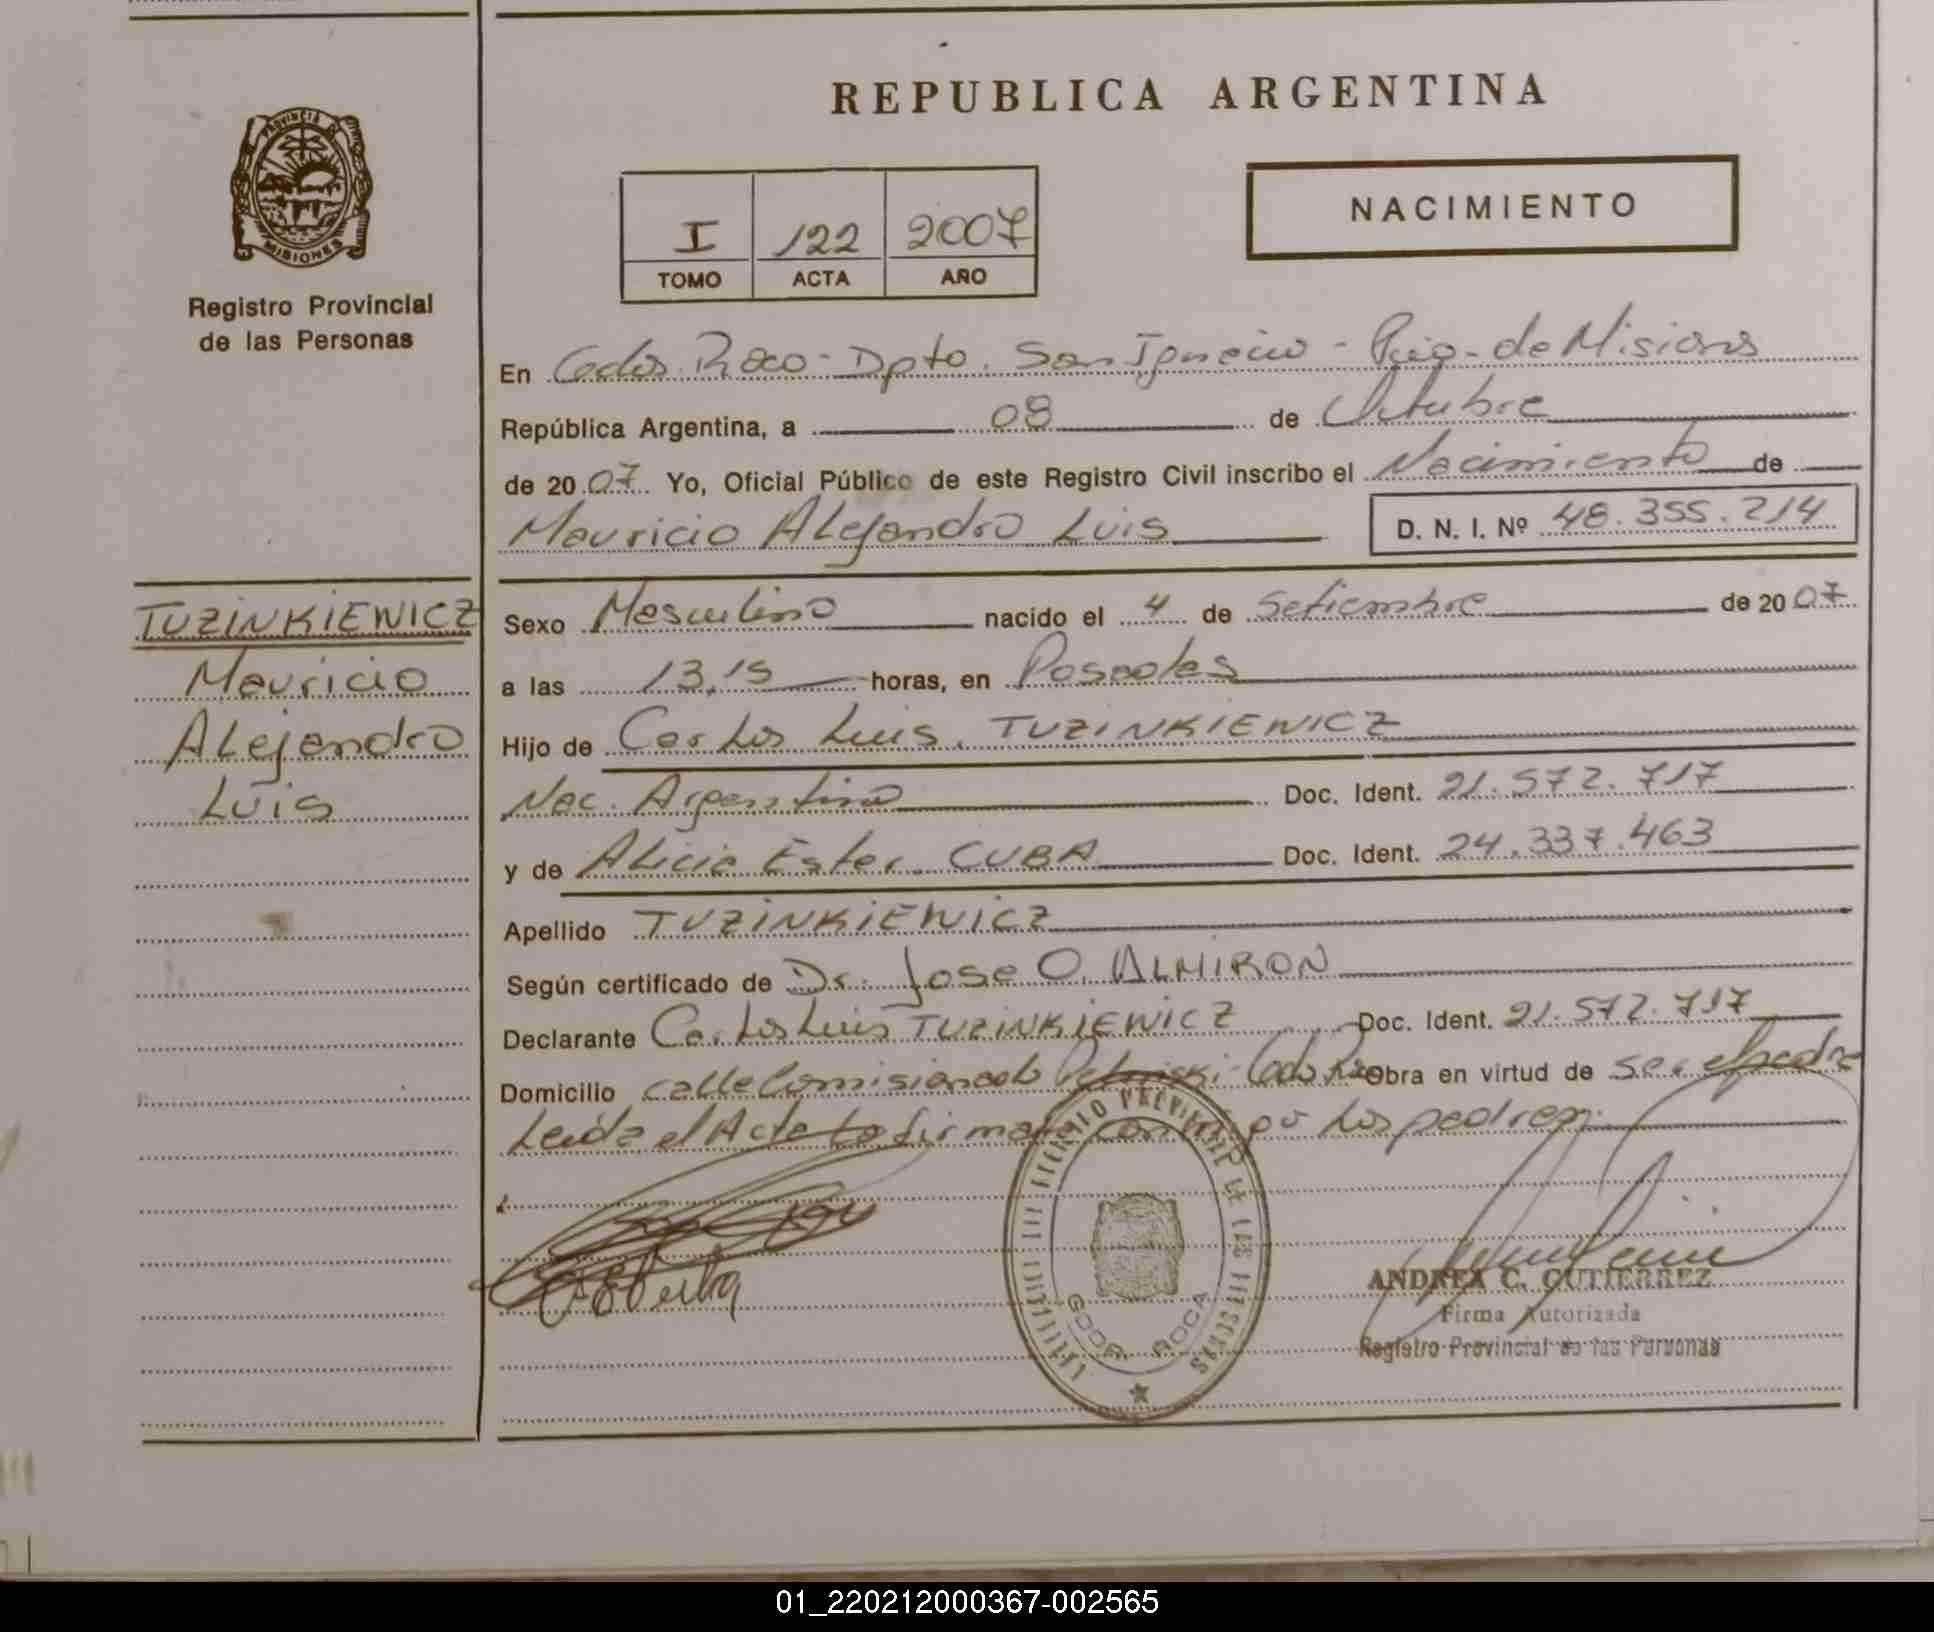 REPUBLICA ARGENTINA
PROVINCIA DE
MISIONES
Registro Provincial
de las Personas
I 122 2007
TOMO ACTA AÑO
NACIMIENTO
En Gdor. Roca - Dpto. San Ignacio - Pcia. de Misiones
República Argentina, a 08 de Octubre
de 2007 Yo, Oficial Público de este Registro Civil inscribo el Nacimiento de
Mauricio Alejandro Luis D. N. I. Nº 48.355.214
TUZINKIEWICZ
Mauricio
Alejandro
Luis
Sexo Masculino nacido el 4 de Setiembre de 2007
a las 13,15 horas, en Posadas
Hijo de Carlos Luis TUZINKIEWICZ
Nac. Argentino Doc. Ident. 21.572.717
y de Alicia Ester CUBA Doc. Ident. 24.337.463
Apellido TUZINKIEWICZ
Según certificado de Dr. Jose O. ALMIRON
Declarante Carlos Luis TUZINKIEWICZ Doc. Ident. 21.572.717
Domicilio calle Comisionado Obra en virtud de ser el padre
Leída el Acta la firman por los padres
GDOR. ROCA
ANDREA C. GUTIERREZ
Firma Autorizada
Registro Provincial de las Personas
01_220212000367-002565